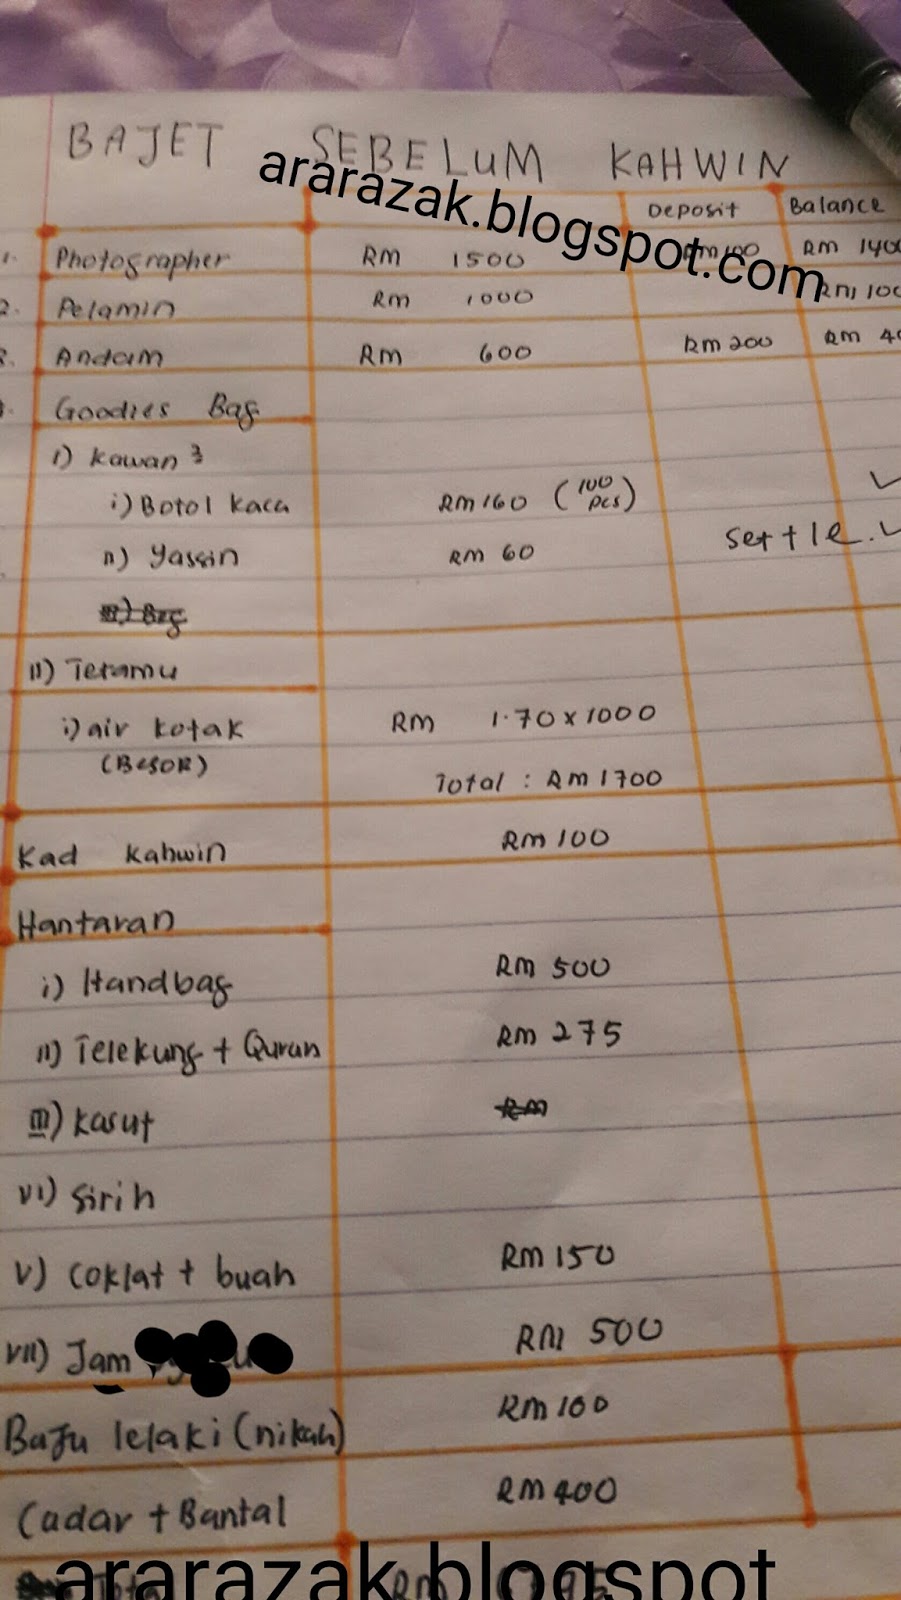 BAJET SEBELUM KAHWIN
ararazak.blogspot.com
Deposit Balance
1. Photographer RM 1500 RM 100 RM 1400
2. Pelamin RM 1000 RM 100
3. Andam RM 600 RM 200 RM 40
Goodies Bag
1) Kawan²
i) Botol kaca RM 160 (100 pcs)
ii) Yassin RM 60 settle.
II) Tetamu
i) air kotak RM 1.70 x 1000
(BESOR)
Total : RM 1700
Kad Kahwin RM 100
Hantaran
i) Handbag RM 500
ii) Telekung + Quran RM 275
iii) Kasut
vi) Sirih
v) Coklat + buah RM 150
vii) Jam RM 500
Baju lelaki (nikah) RM 100
Cadar + Bantal RM 400
ararazak.blogspot